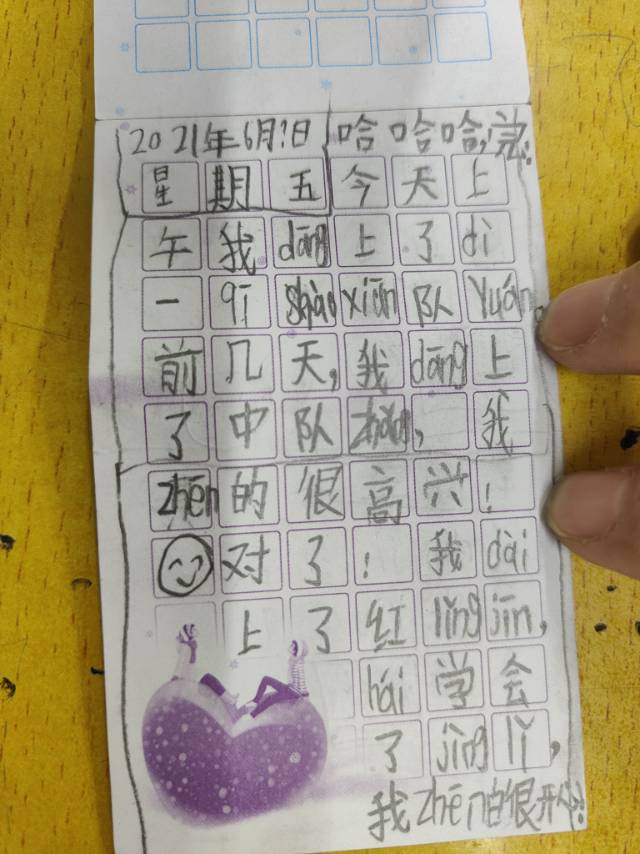 2021年6月?日 哈哈哈,
星期五今天上
午我dāng上了dì
一qī shào xiān队yuán,
前几天,我dāng上
了中队zhǎng,我
zhēn的很高兴!
对了!我dài
上了红lǐng jīn,
hái学会
了jìng lǐ,
我zhēn的很开心!